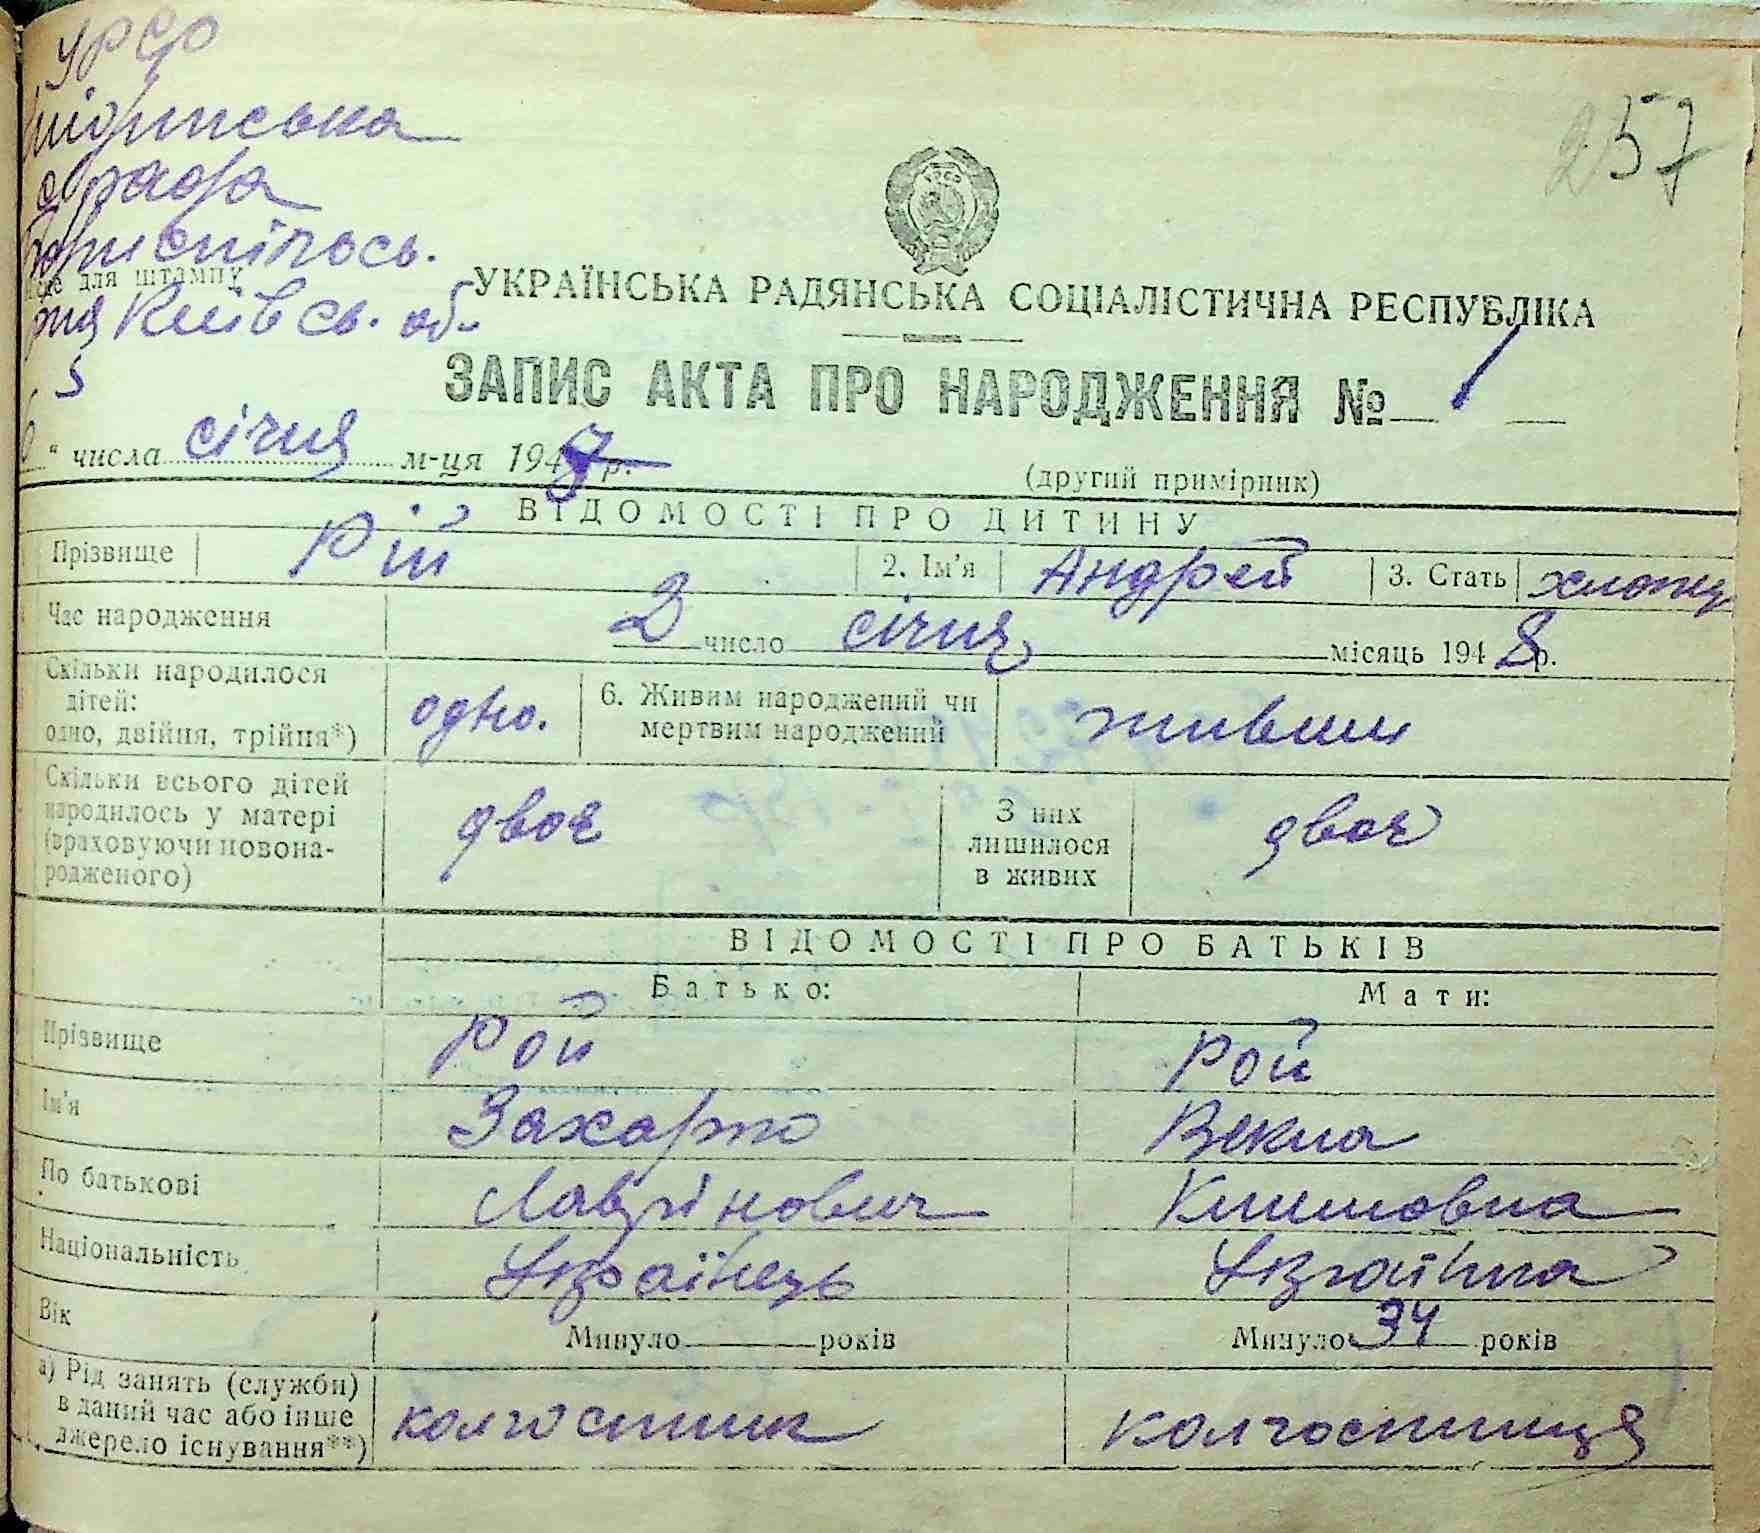 УРСР
с рада
Бориспільсь.
місце для штампу
р-ня Київсь. об.
257
УКРАЇНСЬКА РАДЯНСЬКА СОЦІАЛІСТИЧНА РЕСПУБЛІКА
ЗАПИС АКТА ПРО НАРОДЖЕННЯ № 1
5
" числа січня м-ця 1948 р.
(другий примірник)
ВІДОМОСТІ ПРО ДИТИНУ
Прізвище Рій 2. Ім'я Андрей 3. Стать хлопец
Час народження 2 число січня місяць 1948 р.
Скільки народилося дітей: одно, двійня, трійня*) одно. 6. Живим народжений чи мертвим народжений живим
Скільки всього дітей народилось у матері (враховуючи новонародженого) двоє З них лишилося в живих двоє
ВІДОМОСТІ ПРО БАТЬКІВ
Батько: Мати:
Прізвище Рой Рой
Ім'я Захарко Векла
По батькові Лаврінович Климовна
Національність Українець Українка
Вік Минуло років Минуло 34 років
а) Рід занять (служби) в даний час або інше джерело існування**) колгоспник колгоспниця